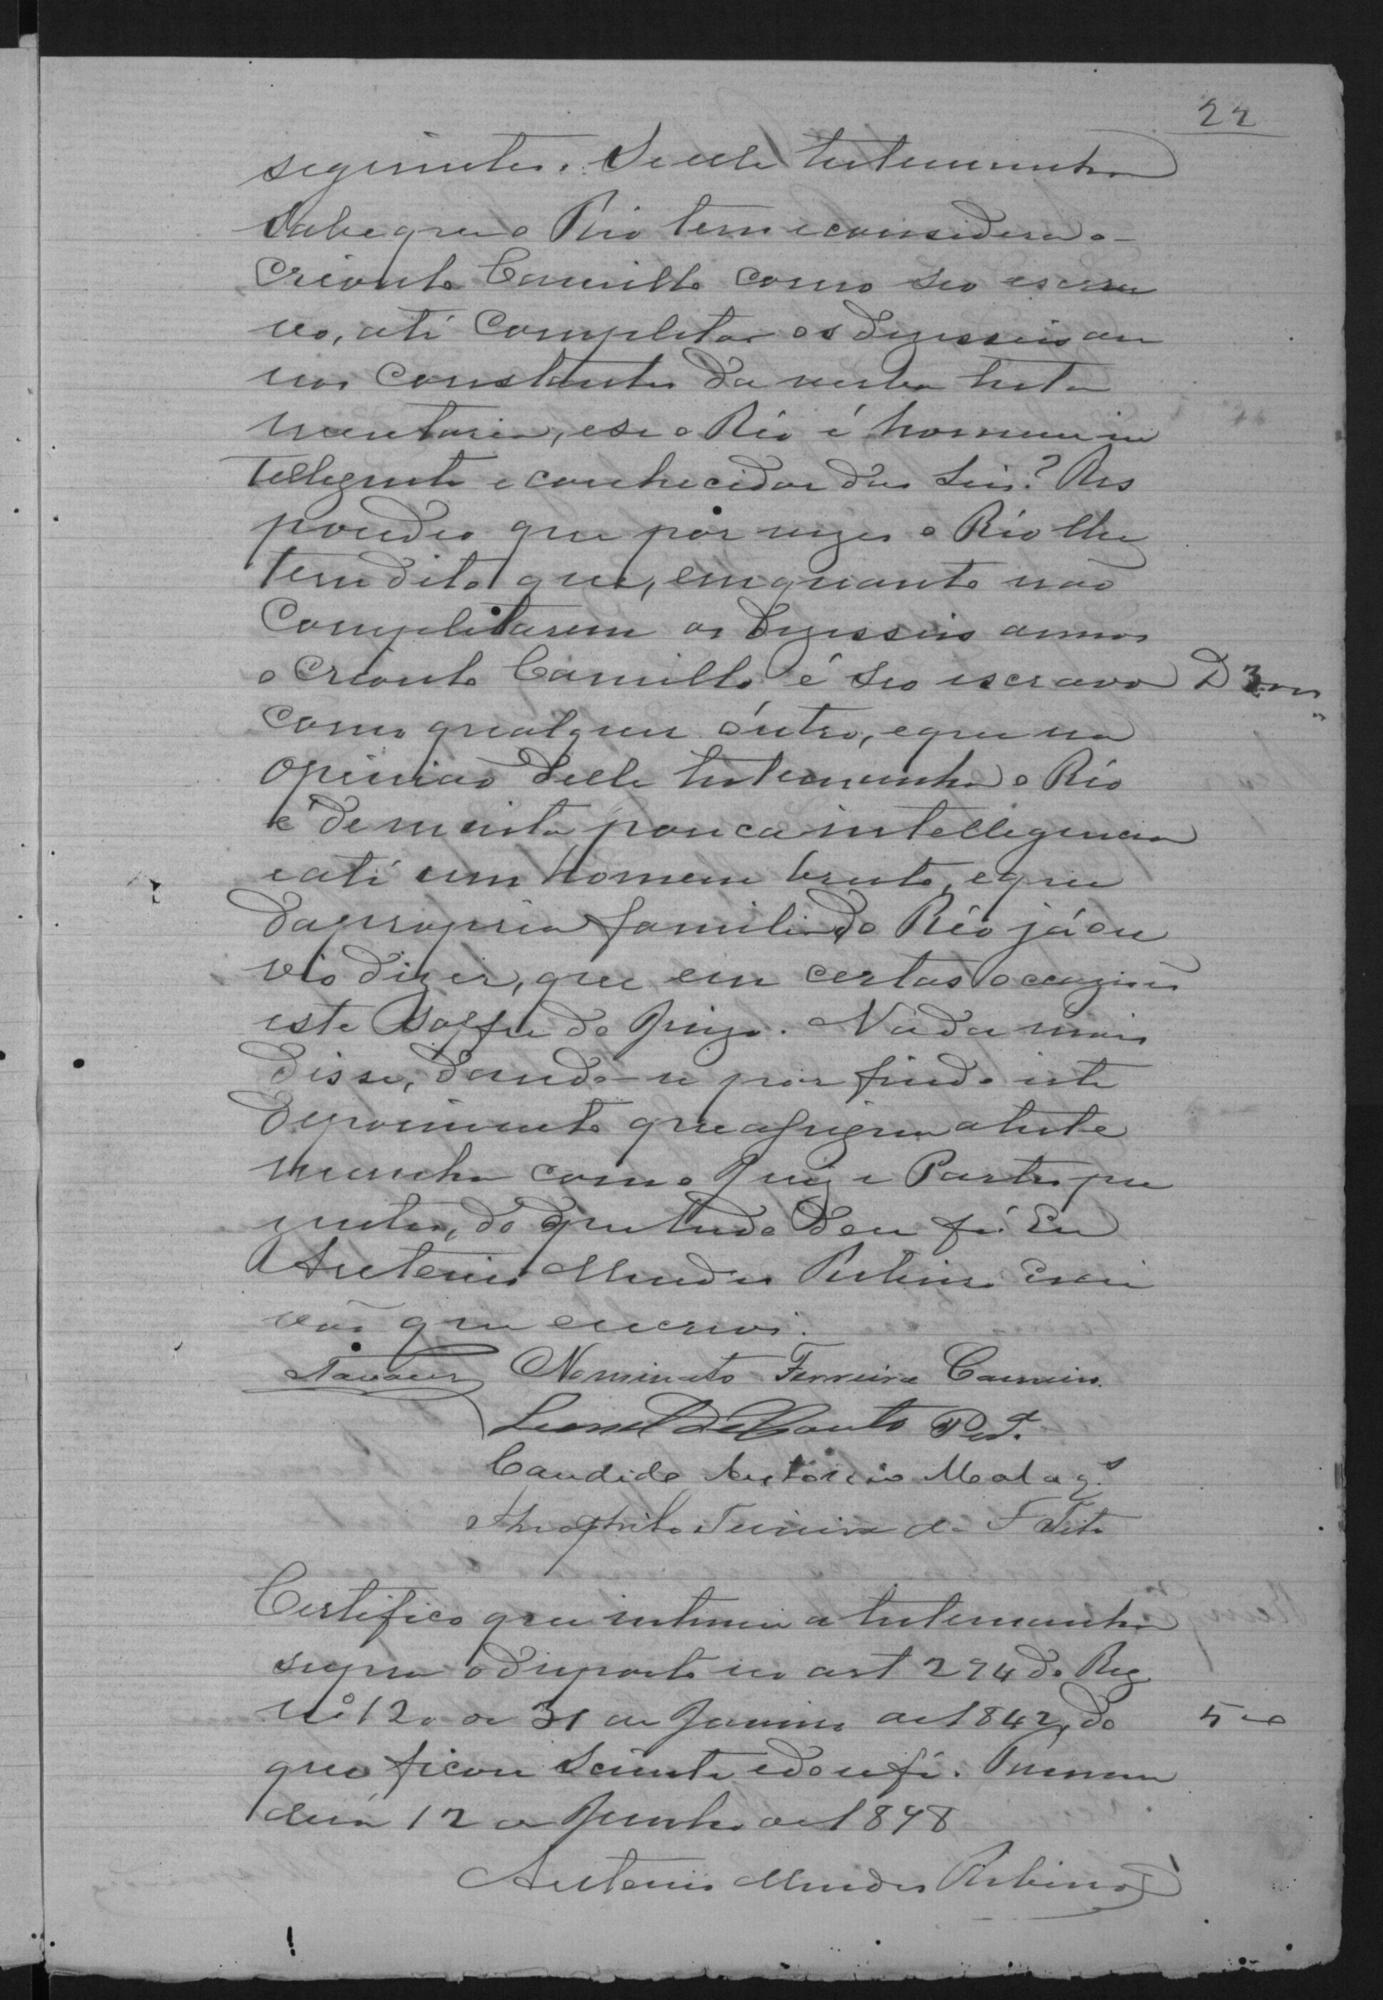 22
seguintes. Se elle testemunha
Sabe que o Réo tem e considera o
Crioulo Camillo como seo escra
vo, até completar os desesseis an
nos constantes da verba testa
mentaria, e se o Réo é homem in
telligente e conhecidor das Leis? Res
pondeo que por vezes o Réo lhe
tem dito que, emquanto não
Completarem os desesseis annos
o Crioulo Camillo é seo escravo
como qualquer óutro, e que na
opinião delle testemunha o Réo
é de muita pouca intelligencia
e até um homem bruto, e que
da propria familia do Réo já ou
vio dizer, que em certas occaziões
este soffre do Juizo. Nada mais
disse, dando-se por findo este
depoimento que assigna a teste
munha com o Juiz e Partes pre
zentes, do que tudo dou fé. Eu
Antonio Mendes Ribeiro Escri
vão que escrevi.
Tavares Nominato Ferreira Carneiro
Leonel do Couto
Candido Antonio Malaq.s
Theophilo Teixeira de
Certifico que intimei a testemunha
supra o disposto no art 294 do Reg
nº 120 de 31 de Janeiro de 1842, do
que ficou sciente e dou fé.
12 de Junho de 1878
Antonio Mendes Ribeiro
500